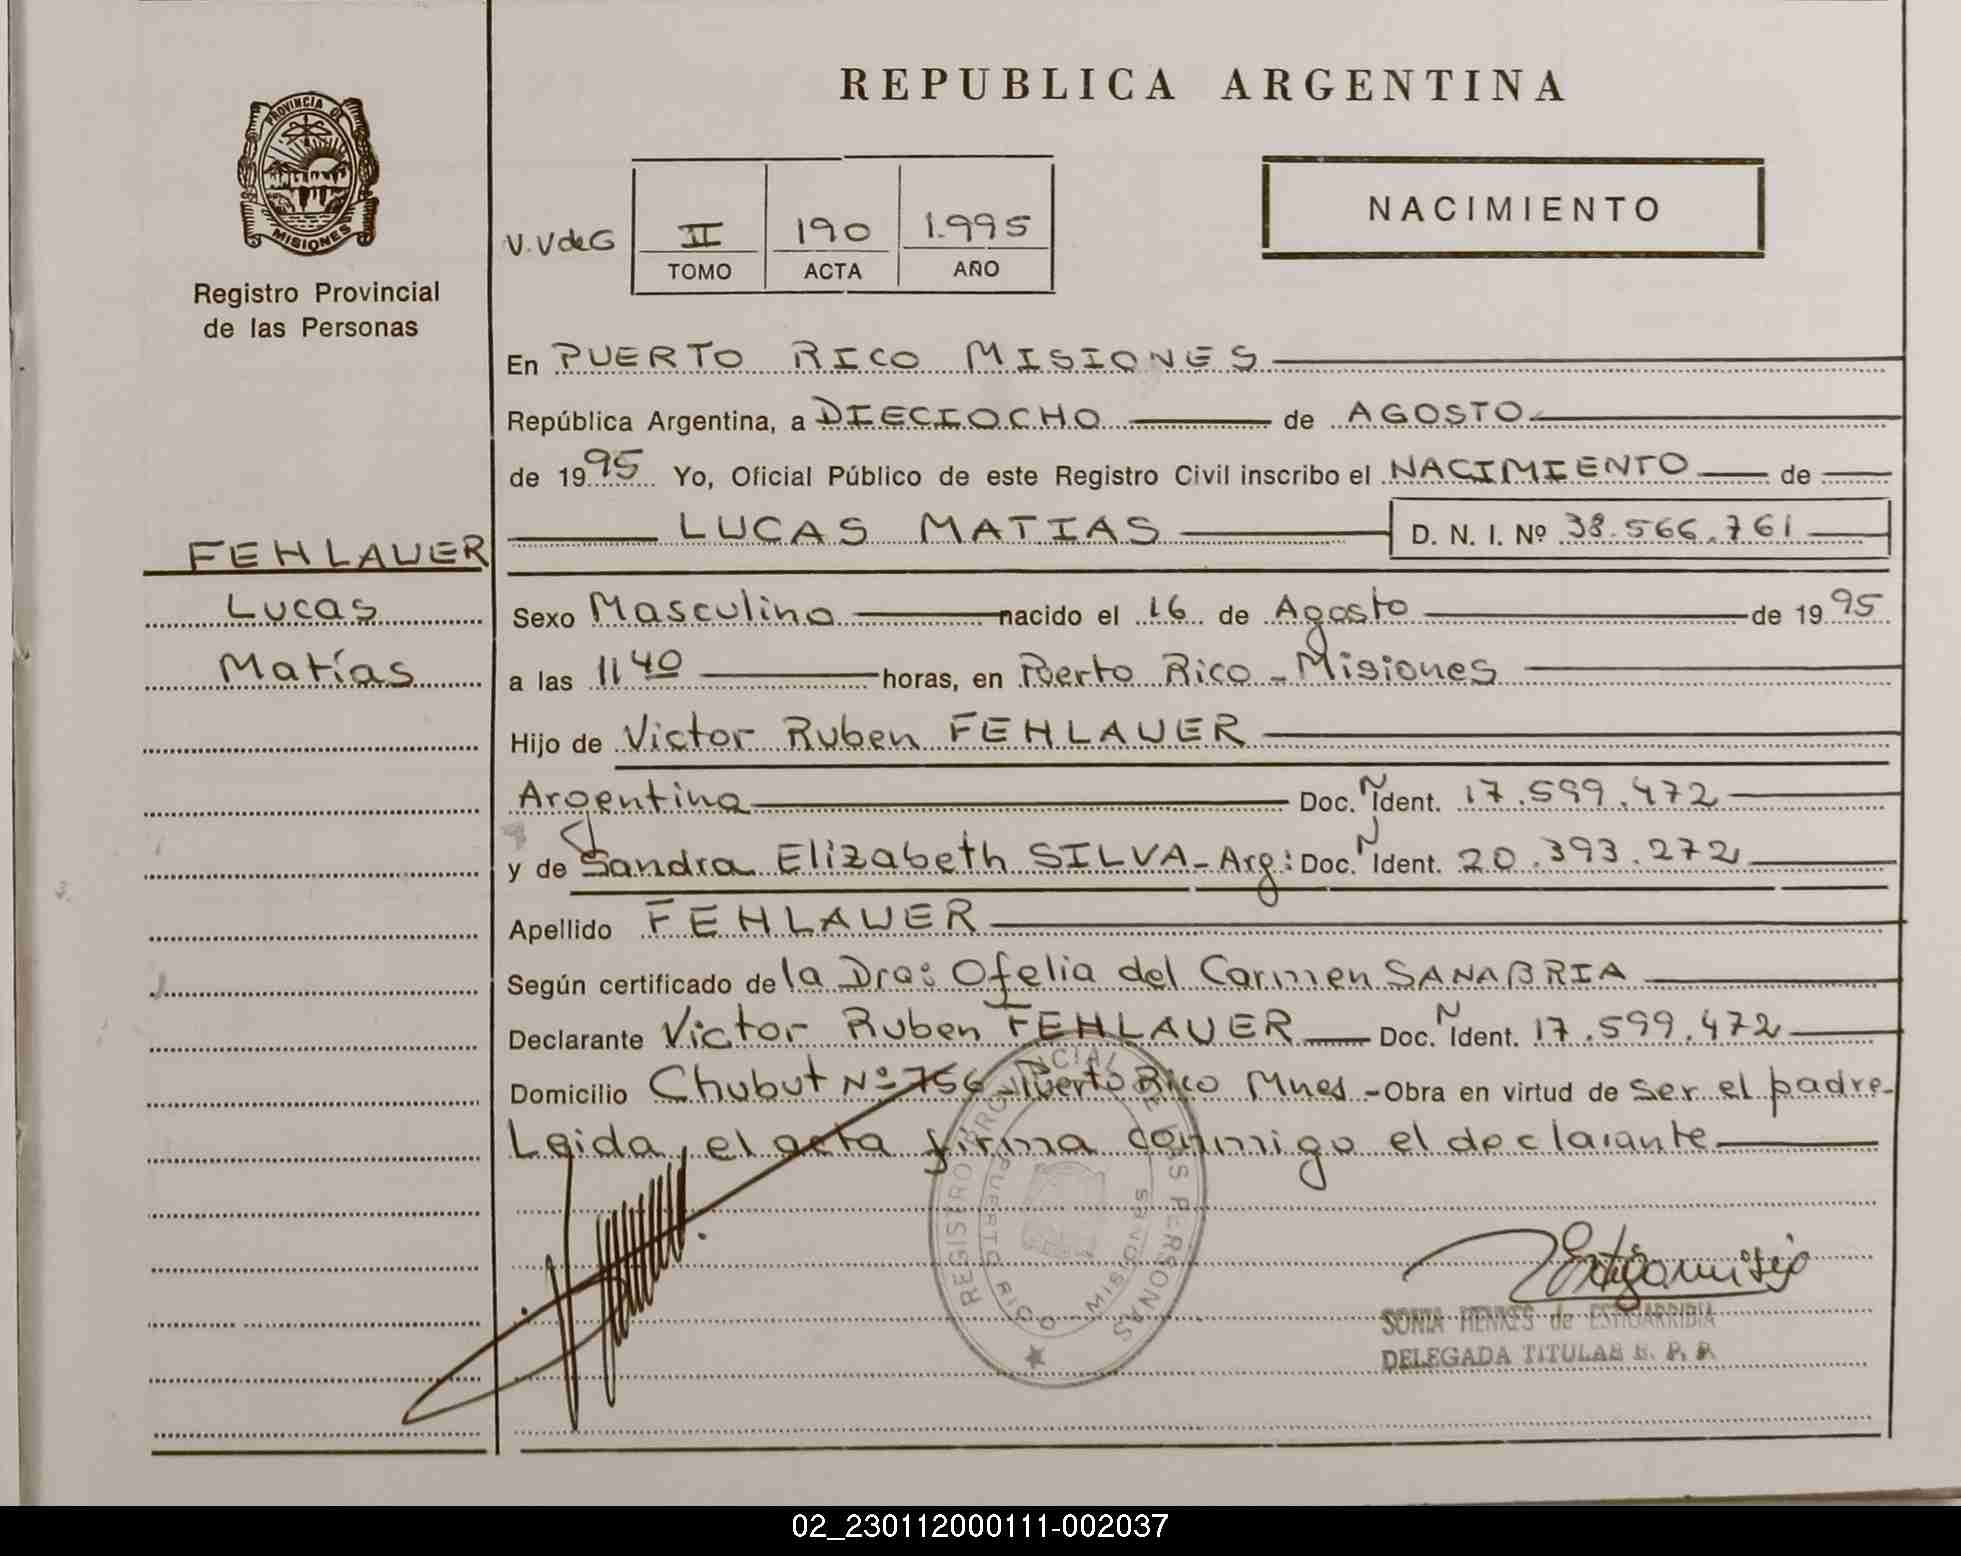 REPUBLICA ARGENTINA
PROVINCIA DE
MISIONES
Registro Provincial
de las Personas
V.VdeG
II 190 1.995
TOMO ACTA AÑO
NACIMIENTO
En PUERTO RICO MISIONES
República Argentina, a DIECIOCHO de AGOSTO
de 1995 Yo, Oficial Público de este Registro Civil inscribo el NACIMIENTO de
LUCAS MATIAS D. N. I. Nº 38.566.761
FEHLAUER
Lucas
Matías
Sexo Masculino nacido el 16 de Agosto de 1995
a las 11 40 horas, en Puerto Rico - Misiones
Hijo de Victor Ruben FEHLAUER
Argentina Doc. N Ident. 17.599.472
y de Sandra Elizabeth SILVA - Arg: Doc. N Ident. 20.393.272
Apellido FEHLAUER
Según certificado de la Dra: Ofelia del Carmen SANABRIA
Declarante Victor Ruben FEHLAUER Doc. N Ident. 17.599.472
Domicilio Chubut Nº 756 - Puerto Rico Mnes - Obra en virtud de ser el padre -
Leida, el acta firma conmigo el declarante
REGISTRO PROVINCIAL DE LAS PERSONAS
PUERTO RICO MISIONES
SONIA HENKES de
DELEGADA TITULAR R. P. P.
02_230112000111-002037